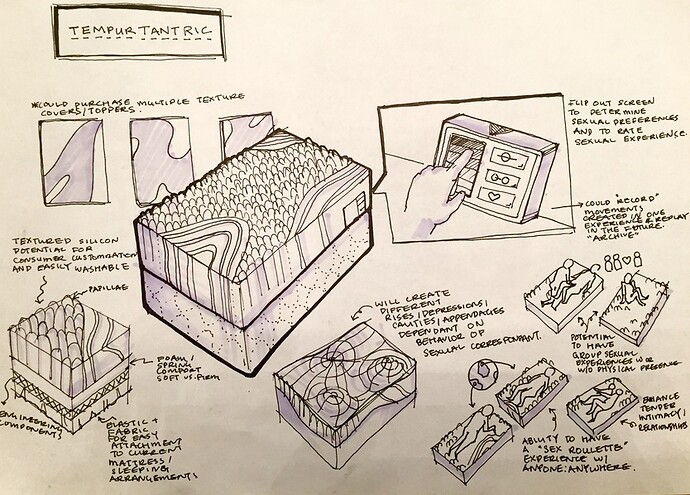 TEMPURTANTRIC
*COULD PURCHASE MULTIPLE TEXTURE
COVERS/TOPPERS.
FLIP OUT SCREEN
TO DETERMINE
SEXUAL PREFERENCES
AND TO RATE
SEXUAL EXPERIENCE.
COULD "RECORD"
MOVEMENTS
CREATED IN ONE
EXPERIENCE & REPLAY
IN THE FUTURE.
"ARCHIVE"
TEXTURED SILICON
POTENTIAL FOR
CONSUMER CUSTOMIZATION
AND EASILY WASHABLE
PAPILLAE
FOAM/
SPRING
COMFORT
SOFT VS. FIRM
ENGINEERING
COMPONENTS
ELASTIC +
FABRIC
FOR EASY
ATTACHMENT
TO CURRENT
MATTRESS/
SLEEPING
ARRANGEMENTS
WILL CREATE
DIFFERENT
RISES/DEPRESSIONS/
CAVITIES/APPENDAGES
DEPENDANT ON
BEHAVIOR OF
SEXUAL CORRESPONDANT.
POTENTIAL
TO HAVE
GROUP SEXUAL
EXPERIENCES W OR
W/O PHYSICAL PRESENCE
ENHANCE
TENDER
INTIMACY/
RELATIONSHIPS
ABILITY TO HAVE
A "SEX ROULETTE"
EXPERIENCE W/
ANYONE:ANYWHERE.